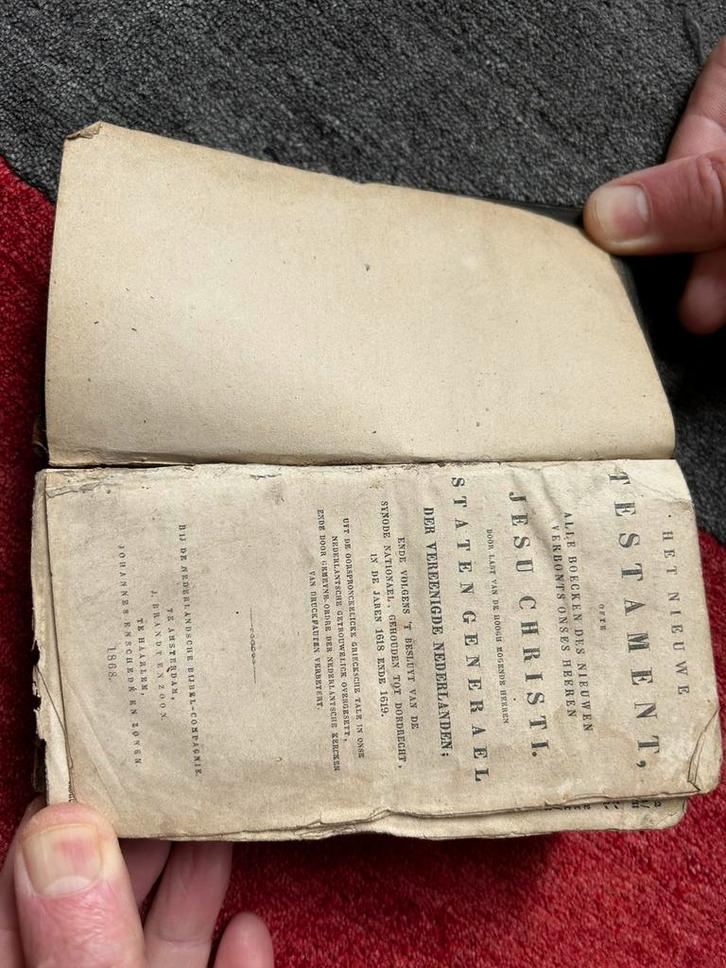 HET NIEUWE
TESTAMENT,
OFTE
ALLE BOECKEN DES NIEUWEN
VERBONTS ONSES HEEREN
JESU CHRISTI.
DOOR LAST VAN DE HOOGH MOGENDE HEEREN
STATEN GENERAEL
DER VEREENIGDE NEDERLANDEN;
ENDE VOLGENS 'T BESLUYT VAN DE
SYNODE NATIONAEL, GEHOUDEN TOT DORDRECHT,
IN DE JAREN 1618 ENDE 1619.
UYT DE OORSPRONCKELICKE GRIECKSCHE TALE IN ONSE
NEDERLANTSCHE GETROUWELICK OVERGESETT,
ENDE DOOR GEMEYNE ORDRE DER NEDERLANTSCHE KERCKEN
VAN DRUCKFAUTEN VERBETERT.
BIJ DE NEDERLANDSCHE BIJBEL-COMPAGNIE.
TE AMSTERDAM,
J. BRANDT EN ZOON.
TE HAARLEM,
JOHANNES ENSCHEDÉ EN ZONEN.
1868.